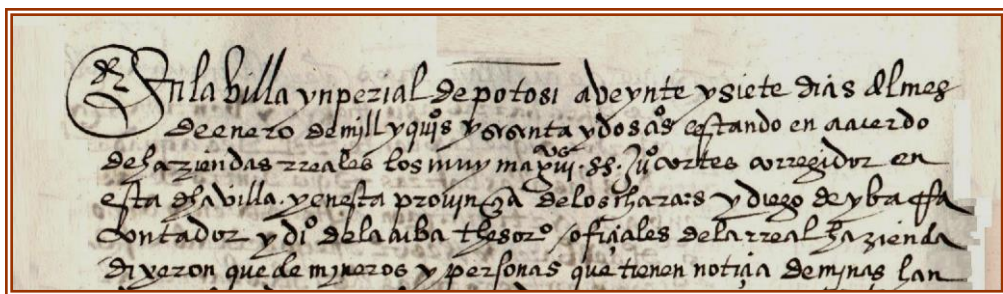 En la billa ynperial de potosi a veynte y siete dias del mes
de enero de mill y quis y sesenta y dos as estando en acuerdo
de haziendas rreales los muy mags ss. juo cortes corregidor en
esta dha villa. y en esta provinçia de los charcas y diego de ybarra
contador y dio de la alba thesoro ofiçiales de la rreal hazienda
dixeron que de mineros y personas que tienen notiçia de minas han